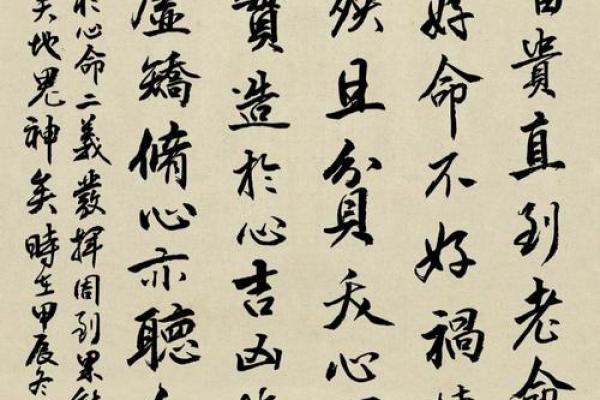 貴直到老命
好命不好禍
殃且貧夭心
實造於心吉凶
虛矯脩心亦聽
於心命二義發揮周到果能
天地鬼神矣時在甲辰冬